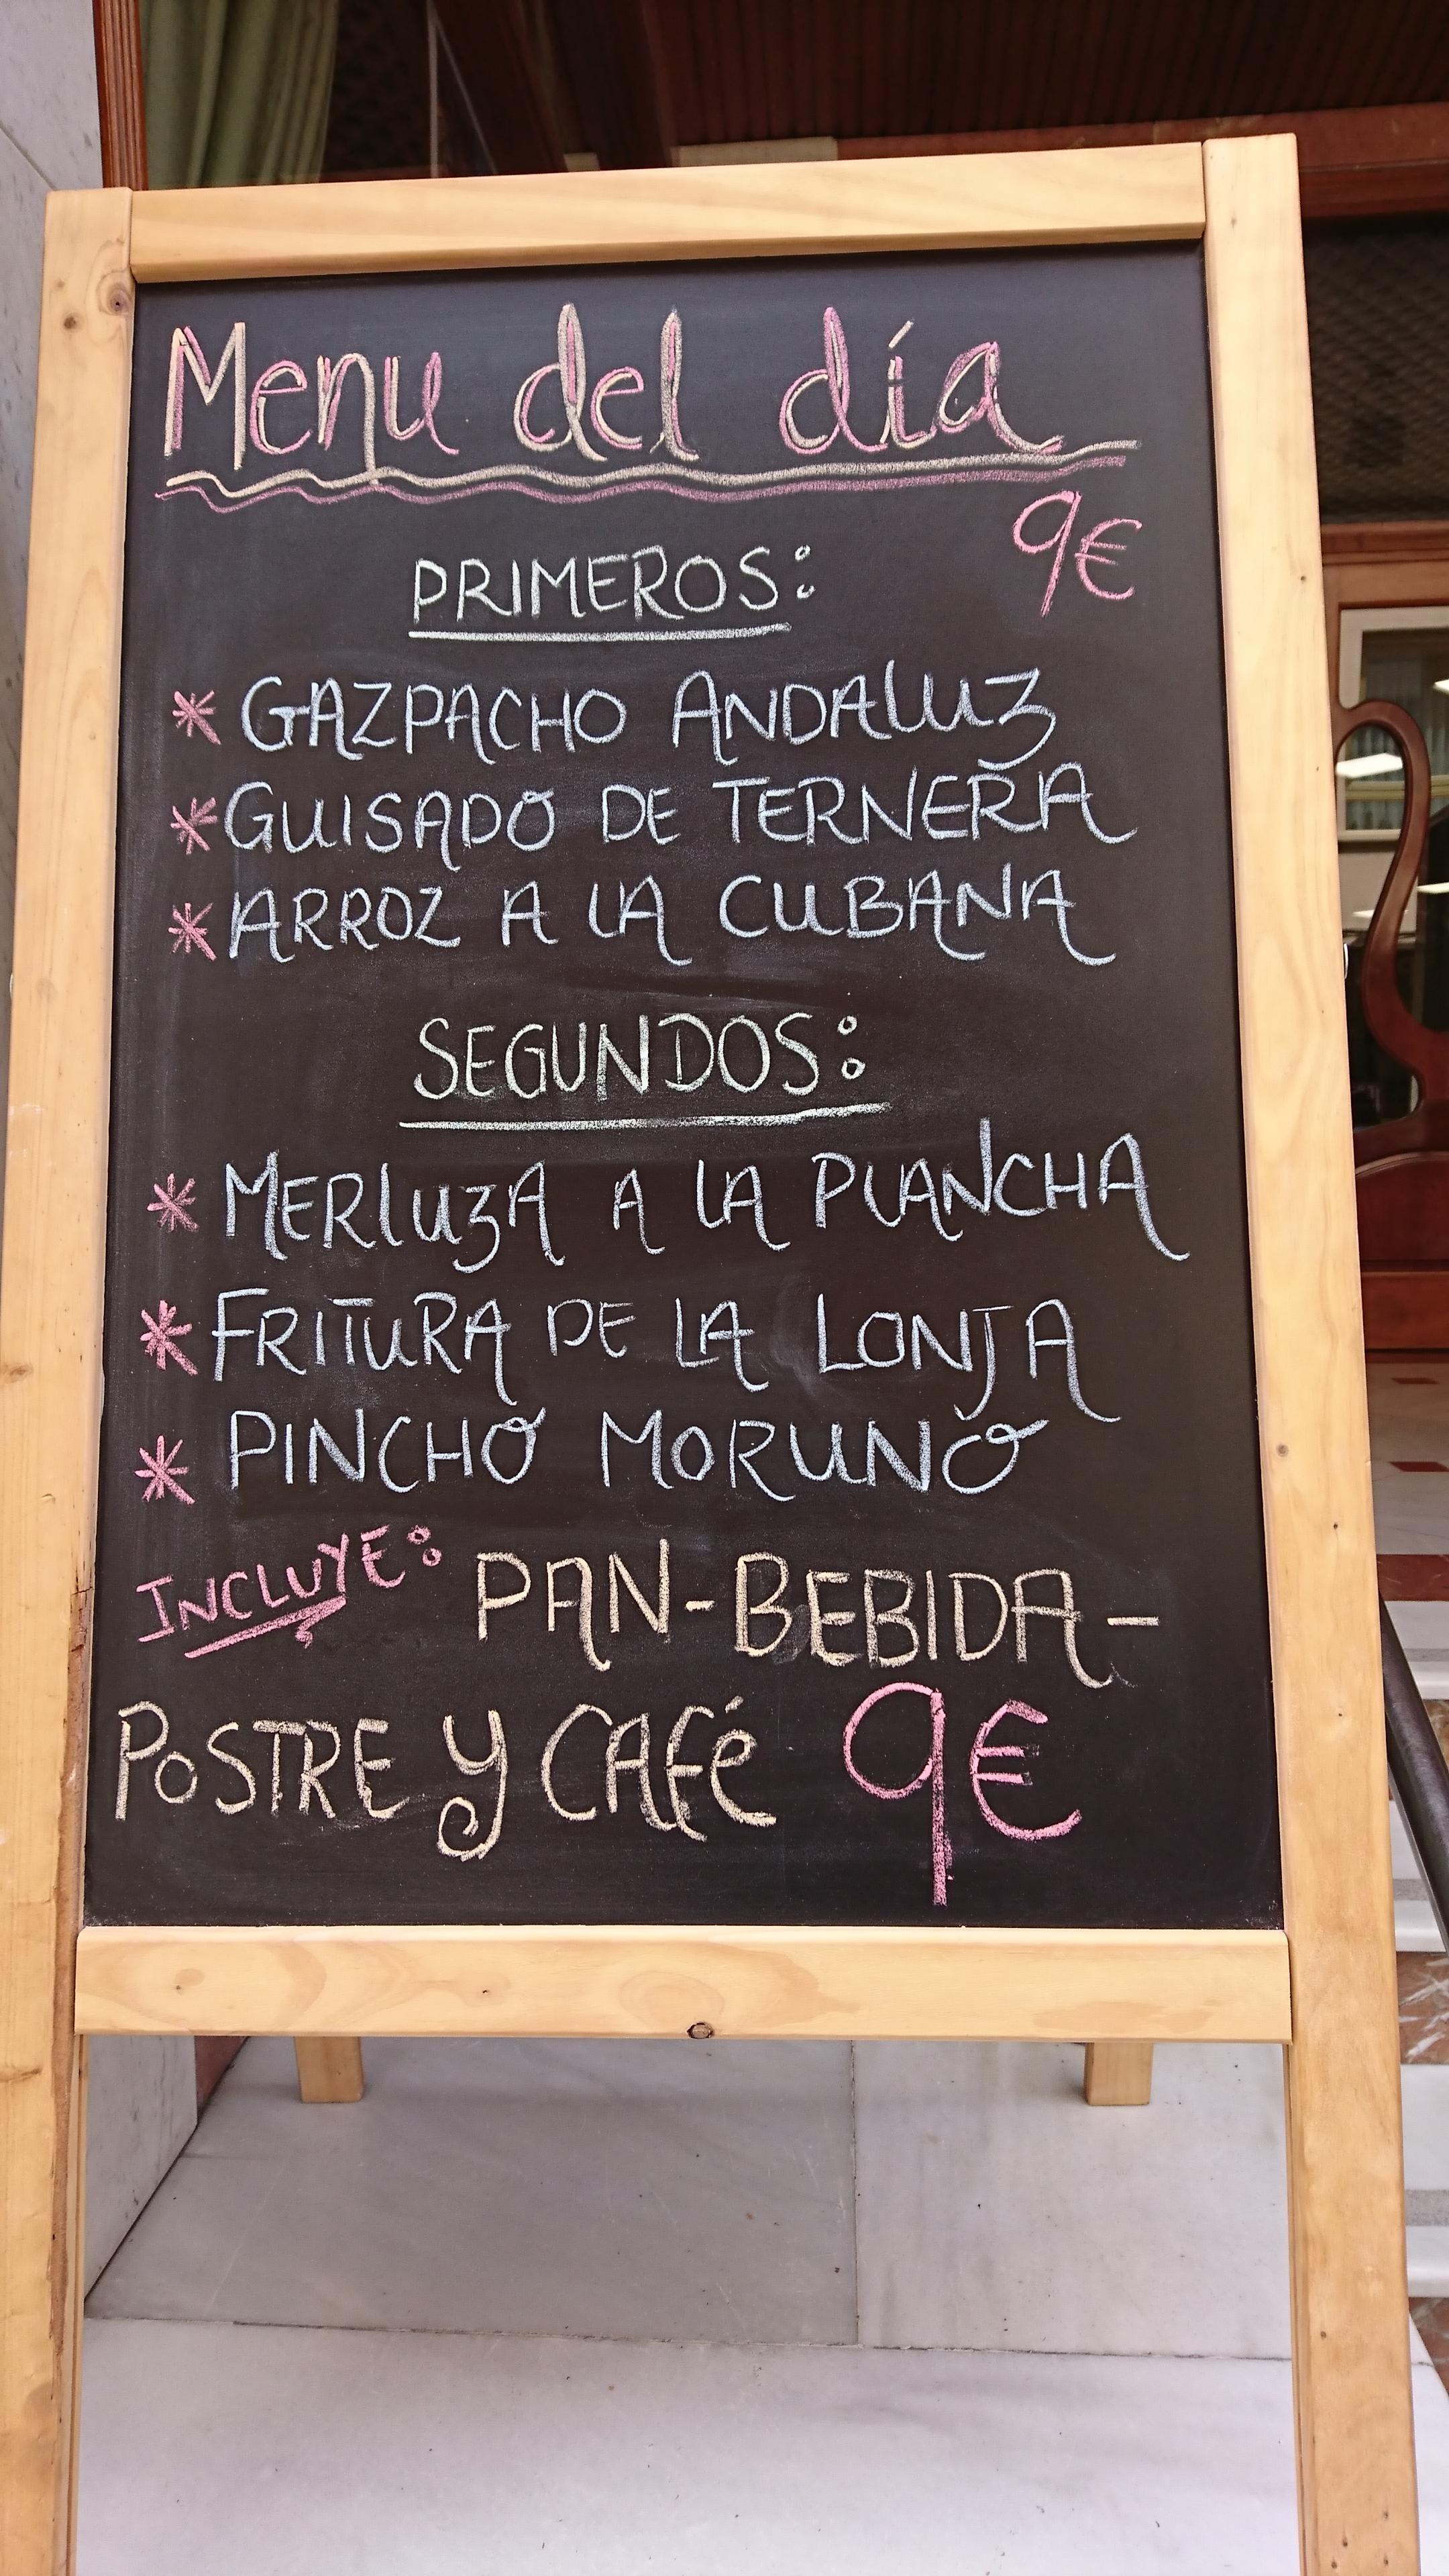 Menu del día
9€
PRIMEROS:
* GAZPACHO ANDALUZ
* GUISADO DE TERNERA
* ARROZ A LA CUBANA
SEGUNDOS:
* MERLUZA A LA PLANCHA
* FRITURA DE LA LONJA
* PINCHO MORUNO
INCLUYE: PAN-BEBIDA-
POSTRE Y CAFÉ 9€